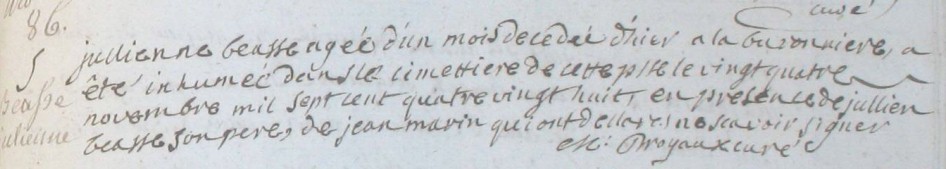 curé
86.
S jullienne beasse agée d'un mois decedeé d'hier a la buronniere, a
beasse
julienne
été inhumeé dans le cimettiere de cette psse le vingt quatre
novembre mil sept cent quatre vingt huit, en presence de jullien
beasse son pere, de jean marin qui ont declarés ne scavoir signer
curé